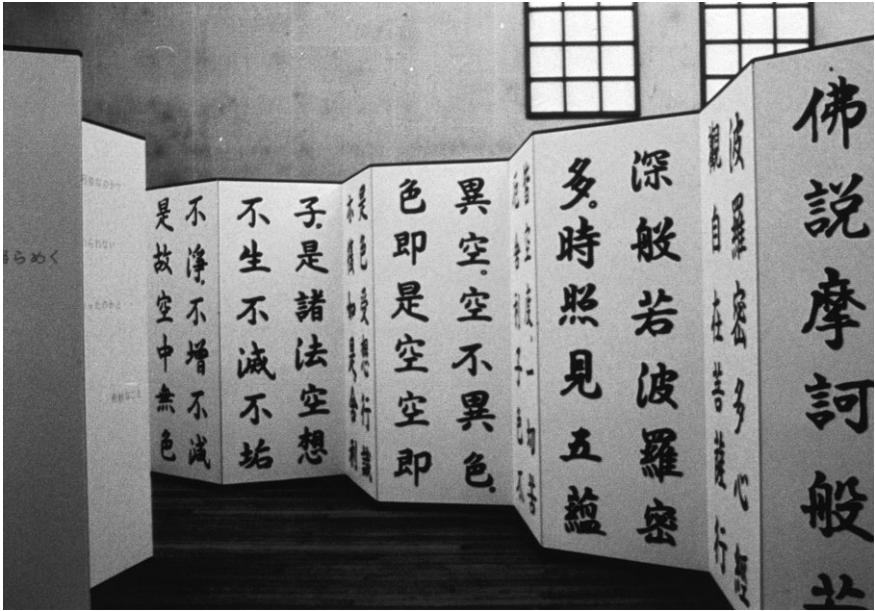 佛説摩訶般若
波羅密多心經
觀自在菩薩行
深般若波羅密
多。時照見五蘊
皆空度。一切苦
厄舍利子色不
異空。空不異色。
色即是空空即
是色受想行識
亦復如是。舍利
子。是諸法空想
不生不滅不垢
不淨。不增不減
是故空中無色
らめく